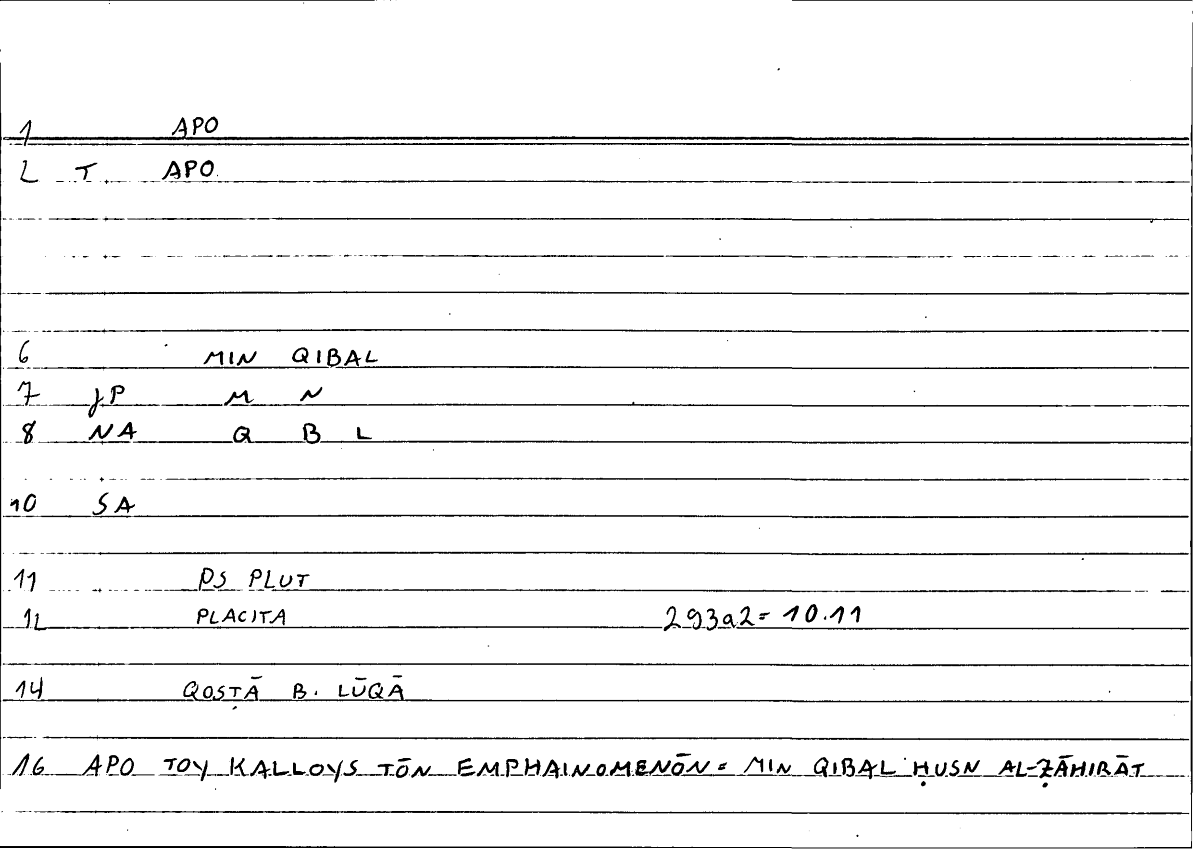 1 APO
2 T APO
6 MIN QIBAL
7 JP M N
8 NA Q B L
10 SA
11 PS PLUT
12 PLACITA 293a2= 10.11
14 QOSṬĀ B. LŪQĀ
16 APO TOY KALLOYS TŌN EMPHAINOMENŌN = MIN QIBAL ḤUSN AL-ẒĀHIRĀT